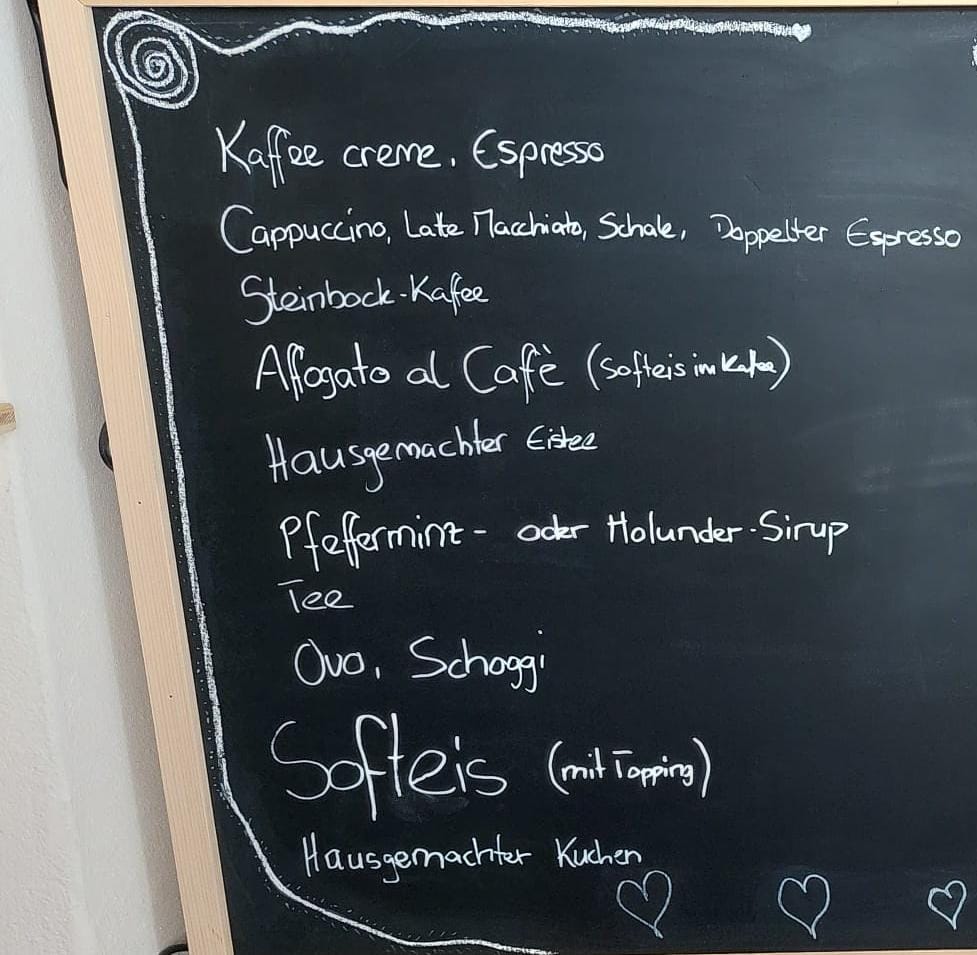 Kaffee creme, Espresso
Cappuccino, Latte Macchiato, Schale, Doppelter Espresso
Steinbock-Kafee
Affogato al Cafè (Softeis im Kafee)
Hausgemachter Eistee
Pfefferminz- oder Holunder-Sirup
Tee
Ovo, Schoggi
Softeis (mit Topping)
Hausgemachter Kuchen